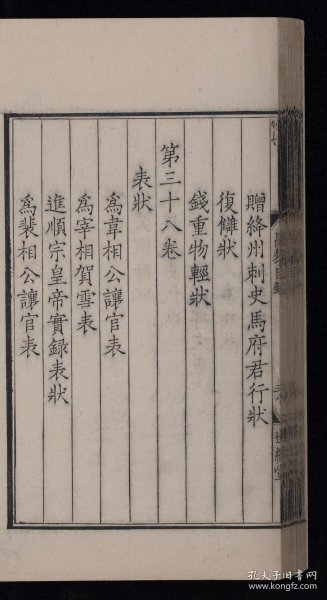 贈絳州刺史馬府君行狀
復讎狀
錢重物輕狀
第三十八卷
表狀
為韋相公讓官表
為宰相賀雪表
進順宗皇帝實録表狀
為裴相公讓官表
孔夫子旧书网